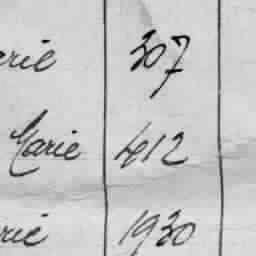 arie 307
Marie 412
arie 1930